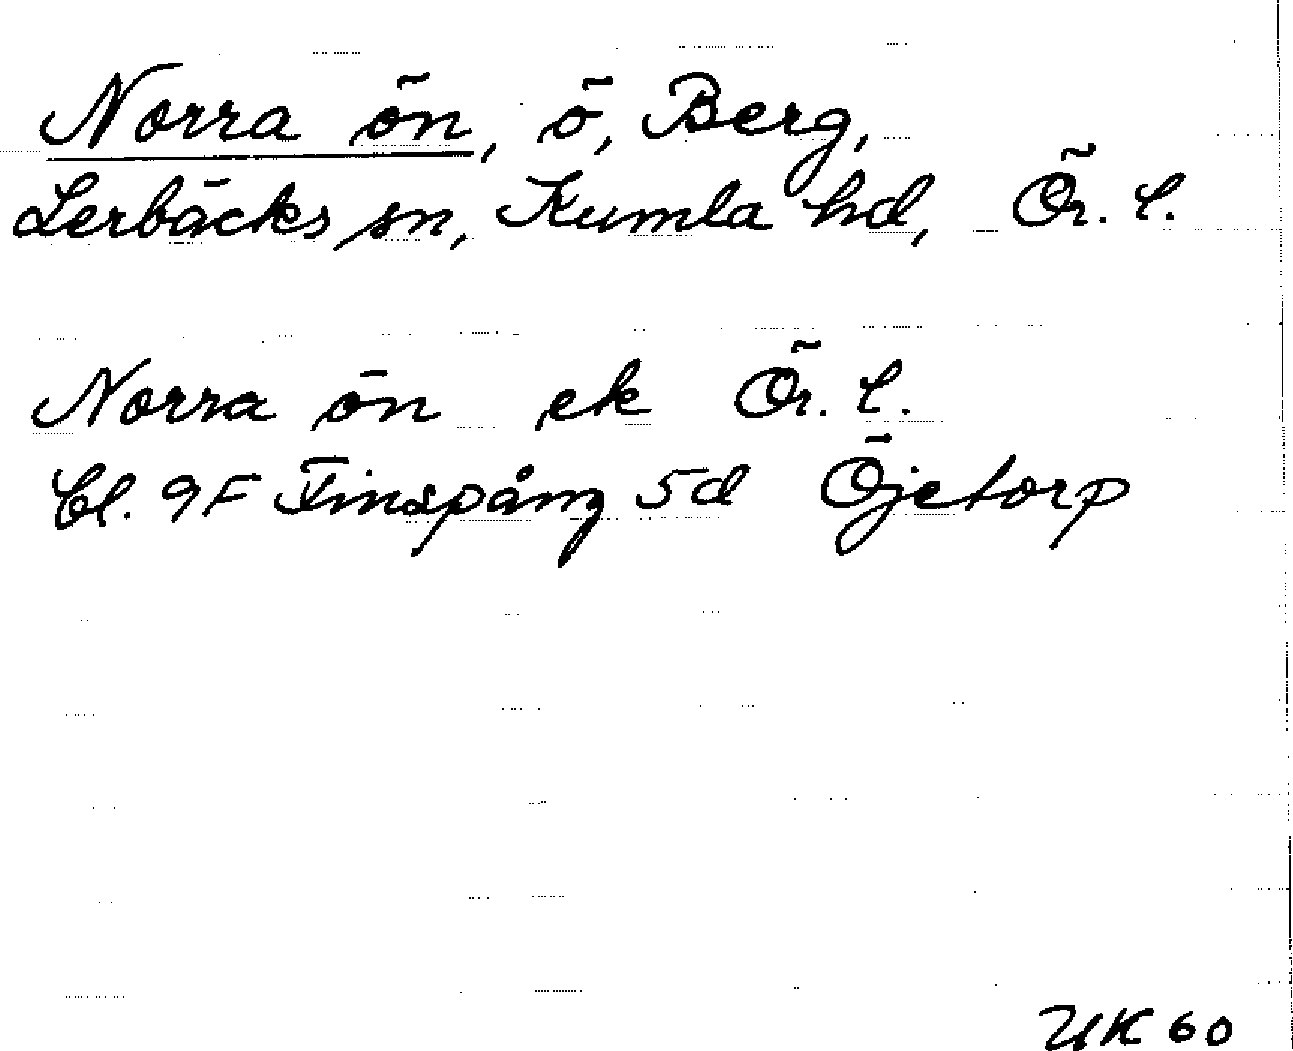 Norra ön, ö, Berg,
Lerbäcks sn, Kumla hd, Ör. l.
Norra ön ek Ör. l.
Bl. 9F Finspång 5d Öjetorp
UK 60